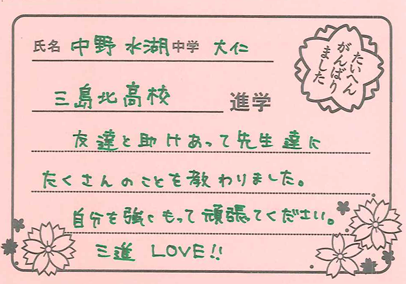 氏名 中野 水湖 中学 大仁
たいへん
がんばり
ました
三島北高校 進学
友達と助けあって先生達に
たくさんのことを教わりました。
自分を強くもって頑張てください。
三進 LOVE!!